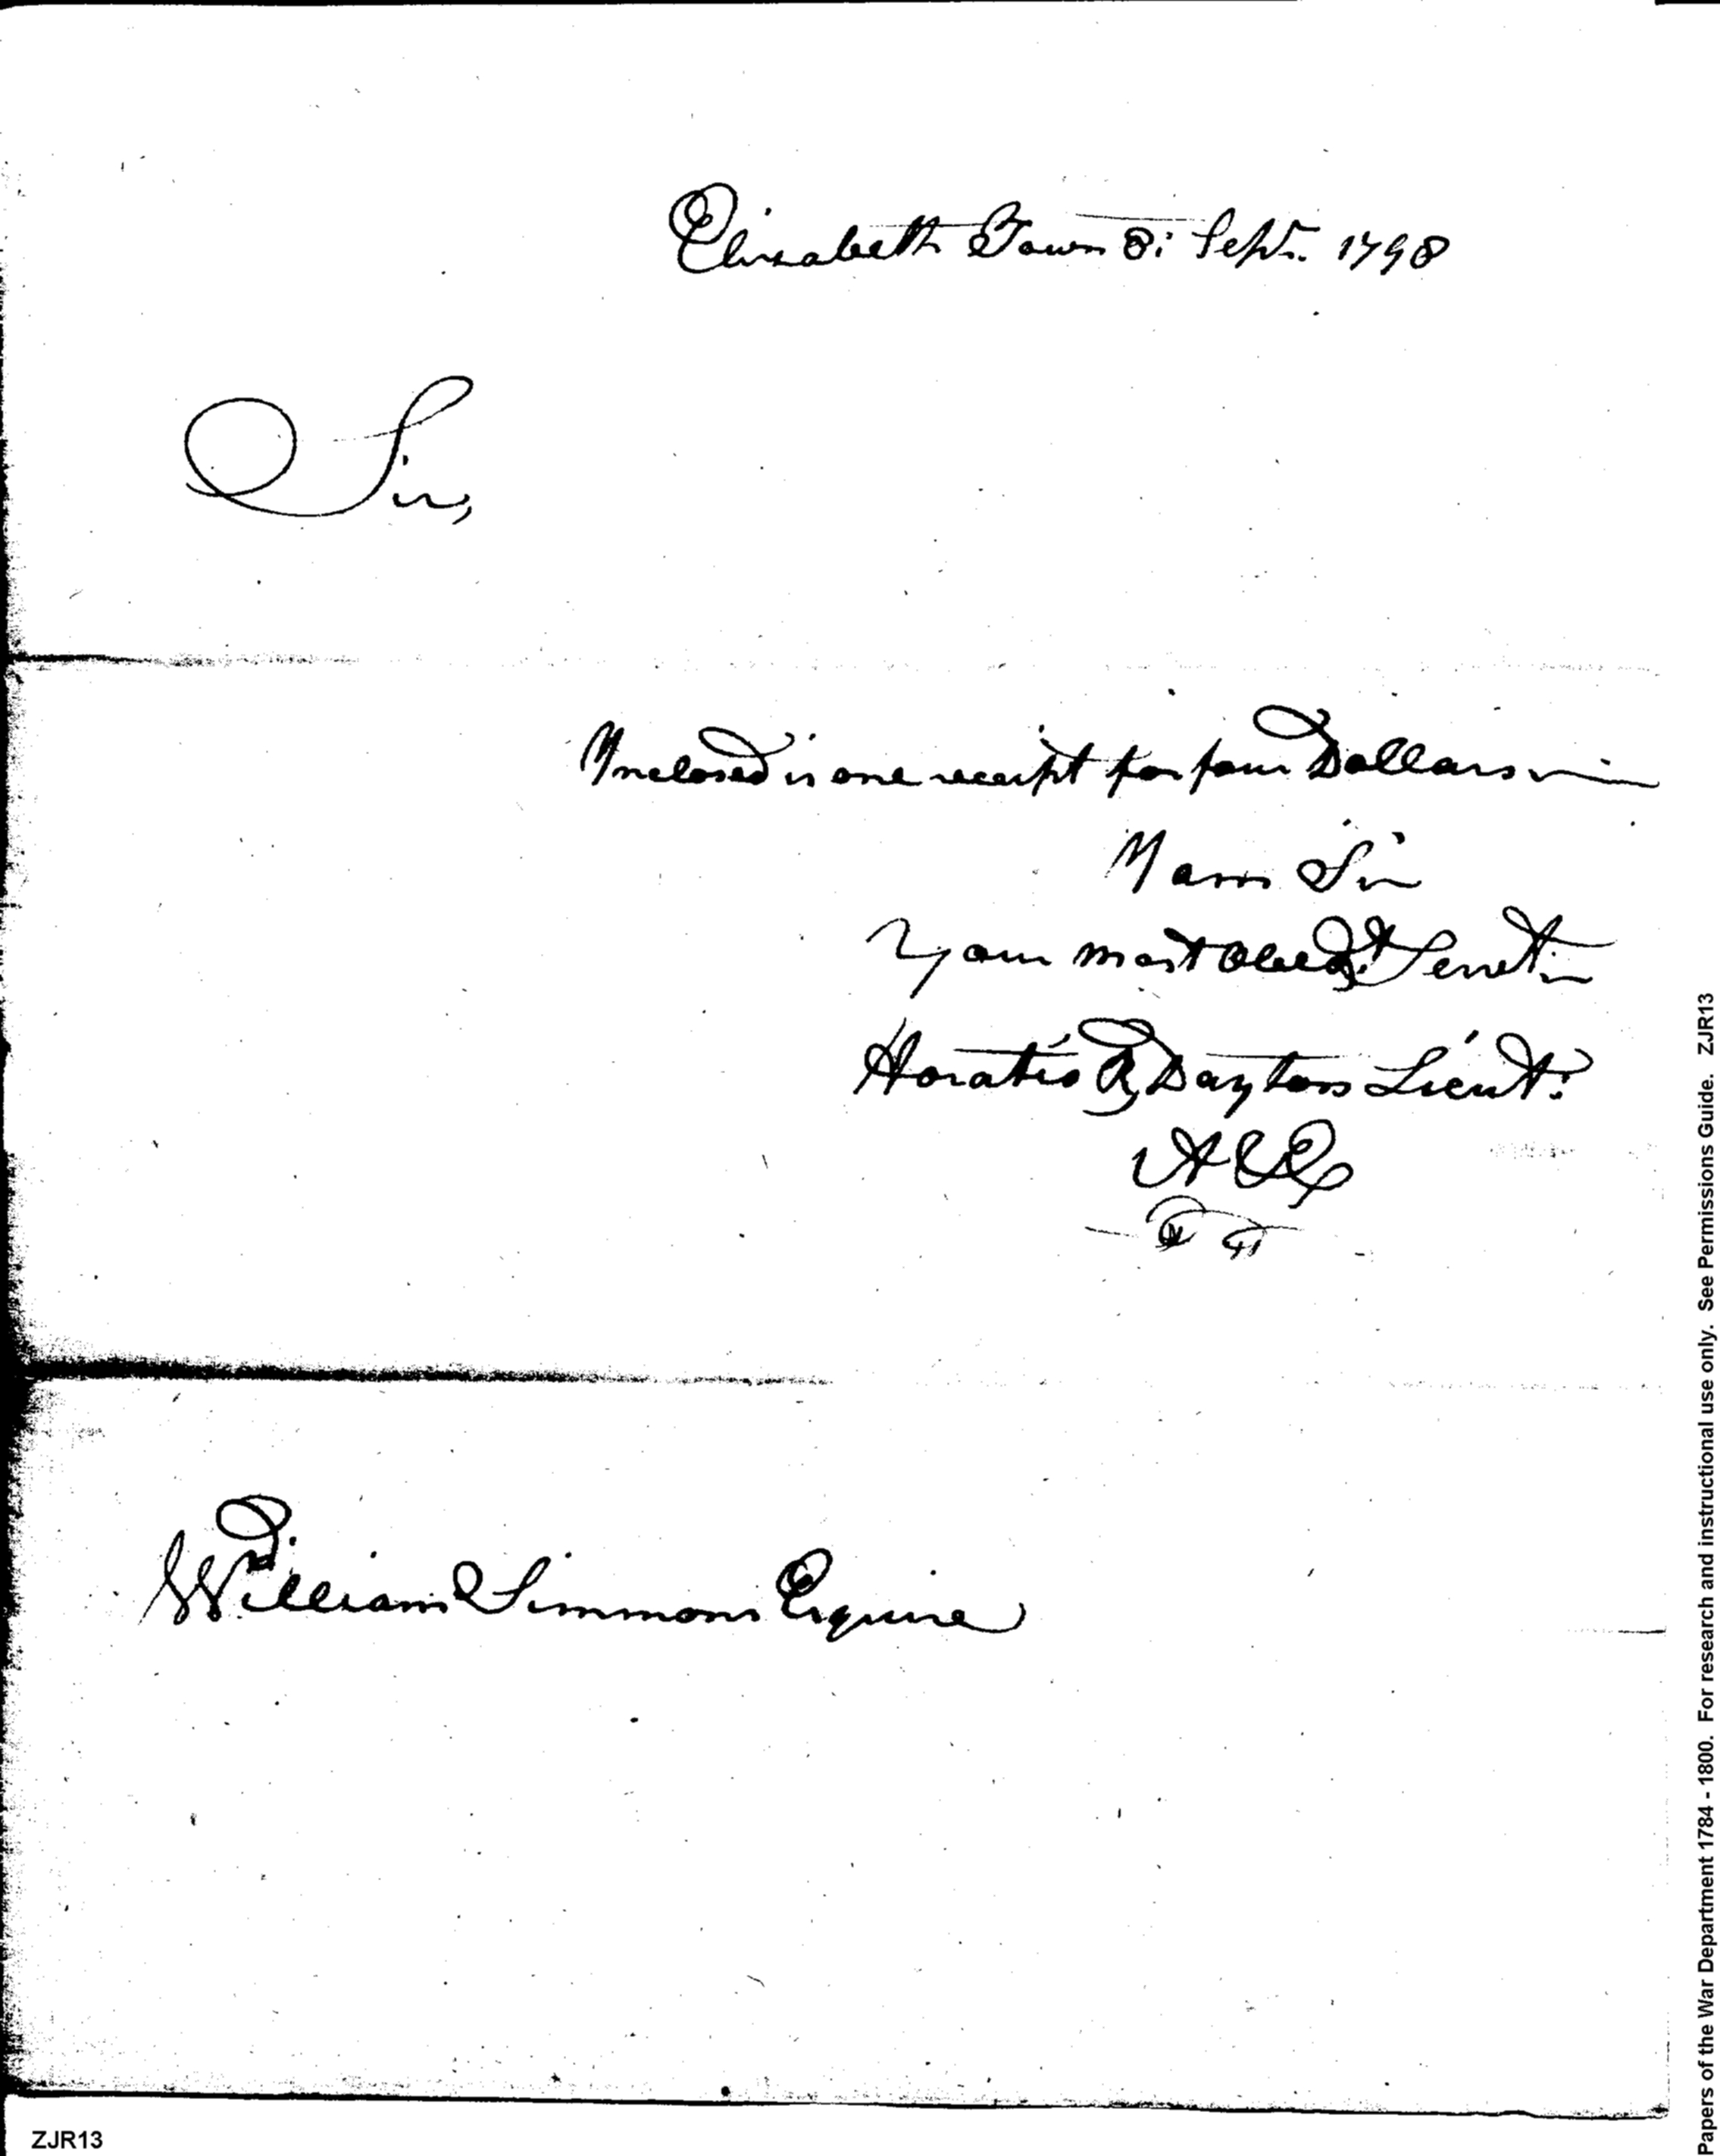 Elizabeth Town 8: Sept. 1798
Sir,
Inclosed is one receipt for four Dollars
I am Sir
Your most Obedt. Servt.
Horatio R Dayton Lieut:
A & E
William Simmons Esquire
Papers of the War Department 1784 - 1800. For research and instructional use only. See Permissions Guide. ZJR13
ZJR13